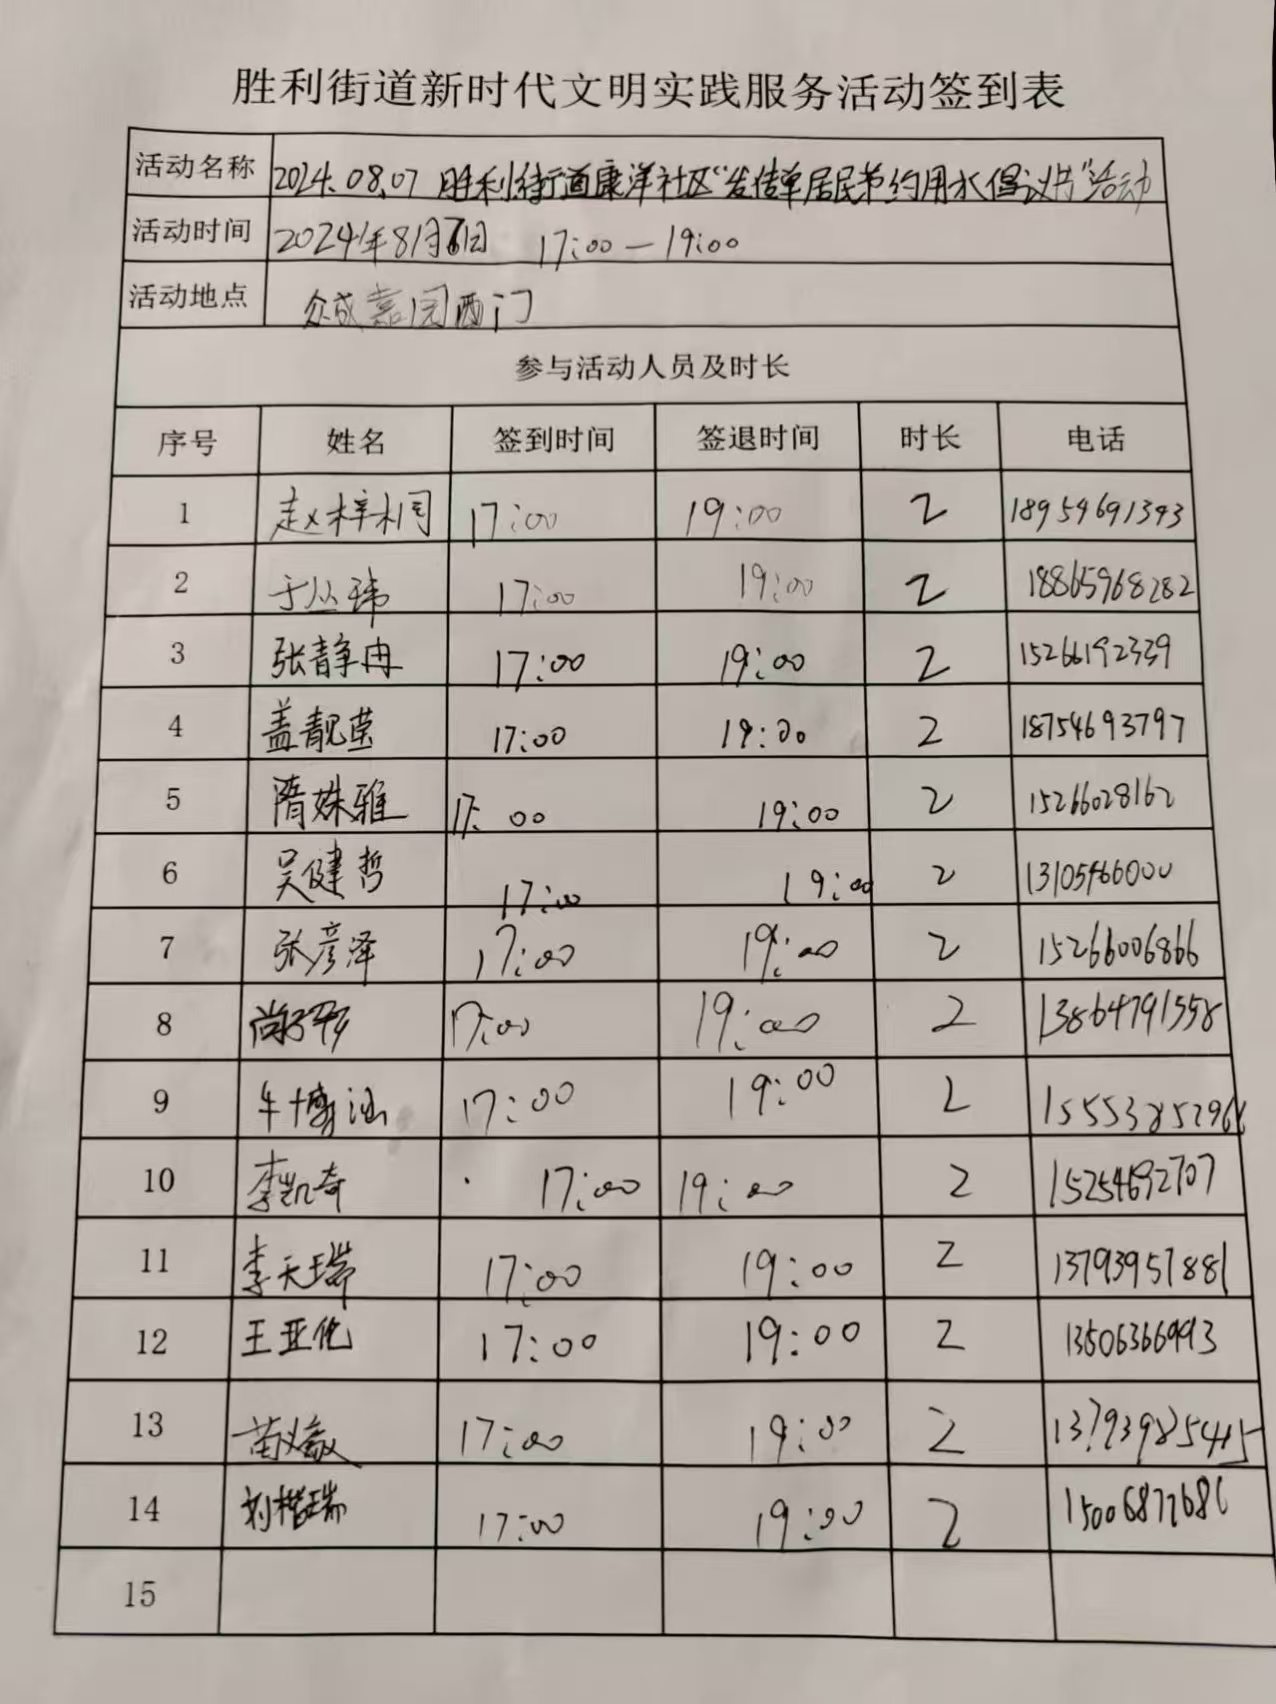 胜利街道新时代文明实践服务活动签到表
活动名称 2024.08.07 胜利街道康洋社区“发传单居民节约用水倡议书”活动
活动时间 2024年8月6日 17:00-19:00
活动地点 众成嘉园西门
参与活动人员及时长
序号 姓名 签到时间 签退时间 时长 电话
1 赵梓桐 17:00 19:00 2 18954691343
2 于丛玮 17:00 19:00 2 18865968282
3 张静冉 17:00 19:00 2 15266192339
4 盖靓莹 17:00 19:00 2 18754693797
5 隋姝雅 17:00 19:00 2 15266028162
6 吴健哲 17:00 19:00 2 13105466000
7 张彦泽 17:00 19:00 2 15266006866
8 17:00 19:00 2 13864791558
9 牛博涵 17:00 19:00 2
10 李凯奇 17:00 19:00 2 15254692707
11 李天瑞 17:00 19:00 2 13793957881
12 王亚伦 17:00 19:00 2 13506366993
13 苗义敏 17:00 19:00 2 13793985445
14 刘楷瑞 17:00 19:00 2 15006877686
15